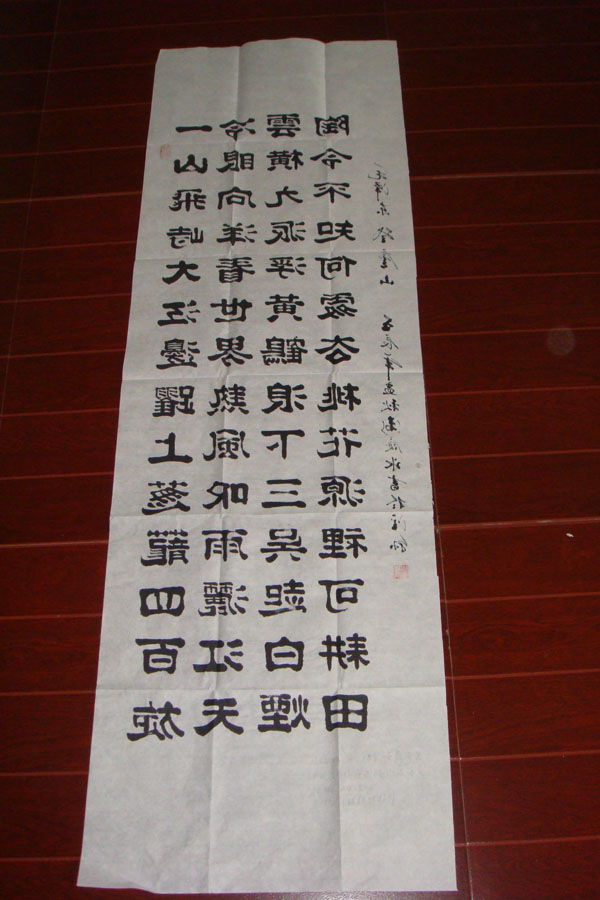 一山飛峙大江邊躍上蔥蘢四百旋
冷眼向洋看世界熱風吹雨灑江天
雲橫九派浮黃鶴浪下三吳起白煙
陶令不知何處去桃花源裡可耕田
毛澤东登廬山 辰年孟秋 書於